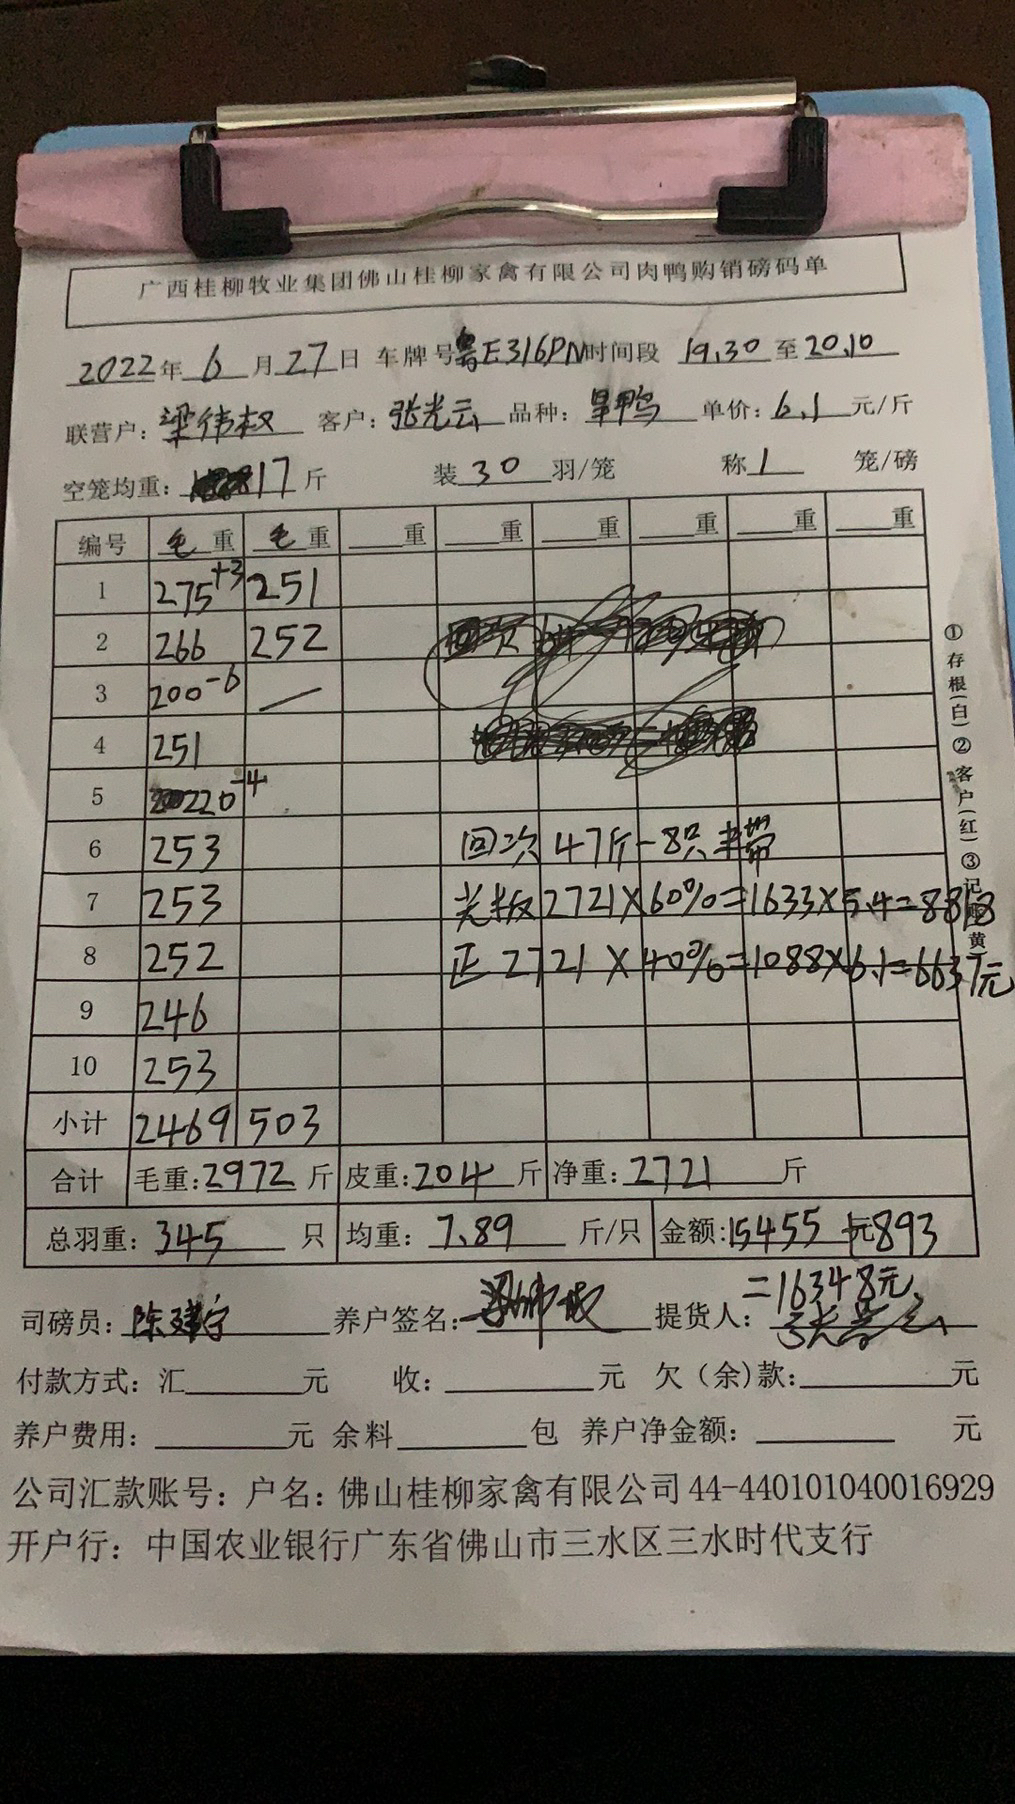 广西桂柳牧业集团佛山桂柳家禽有限公司肉鸭购销磅码单
2022年 6 月 27 日 车牌号 粤E316PN 时间段 19.30 至 20.10
联营户: 梁伟权 客户: 张光云 品种: 旱鸭 单价: 6.1 元/斤
空笼均重: 17 斤 装 30 羽/笼 称 1 笼/磅
编号 毛重 毛重 重 重 重 重 重 重
1 275+3 251
2 266 252
3 200-6 —
4 251
5 220-4
6 253 回次 47斤-8只未带
7 253 光板 2721×60%=1633×5.4=8818
8 252 正 2721×40%=1088×6.1=6637元
9 246
10 253
小计 2469 503
合计 毛重: 2972 斤 皮重: 204 斤 净重: 2721 斤
总羽重: 345 只 均重: 7.89 斤/只 金额: 15455 元+893
=16348元
司磅员: 陈建宁 养户签名: 梁伟权 提货人: 张光云
付款方式: 汇 元 收: 元 欠(余)款: 元
养户费用: 元 余料 包 养户净金额: 元
公司汇款账号: 户名: 佛山桂柳家禽有限公司 44-440101040016929
开户行: 中国农业银行广东省佛山市三水区三水时代支行
①存根(白)②客户(红)③记 黄